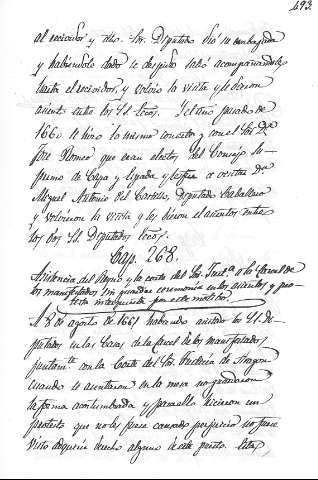 493.
al recividor y dho. Sor. Diputado dió su embajada
y habiendolo dado se despidio salió acompañandole
hasta el recividor, y volvio la visita y le dieron
asiento entre los SS. Eccos. Y el año pasado de
1660 se hizo lo mismo con este y con el Sor. Dn.
José Romeo que eran electos del Consejo Su-
premo de Capa y Espada y a visitar Dn.
Miguel Antonio del Castillo, Diputado Caballero
y volvieron la visita y les dieron el asiento entre
los dos SS. Diputados Eccos.
Cap. 268.
Asistencia del Reyno y la corte del Sor. Justa. a la Carcel de
los manifestados sin guardar ceremonia en los asientos y pro-
testa interpuesta por este motivo.
A 8 de agosto de 1661 habiendo asistido los SS. Di-
putados en las Casas de la Carcel de los manifestados,
juntamte. con la Corte del Sor. Justicia de Aragon
Cuando se asentaron en la mesa no guardaron
la forma acostumbrada y para ello hicieron un
protesto que no les fuese causado perjuicio no fuese
visto adquirir derecho alguno de este puesto.